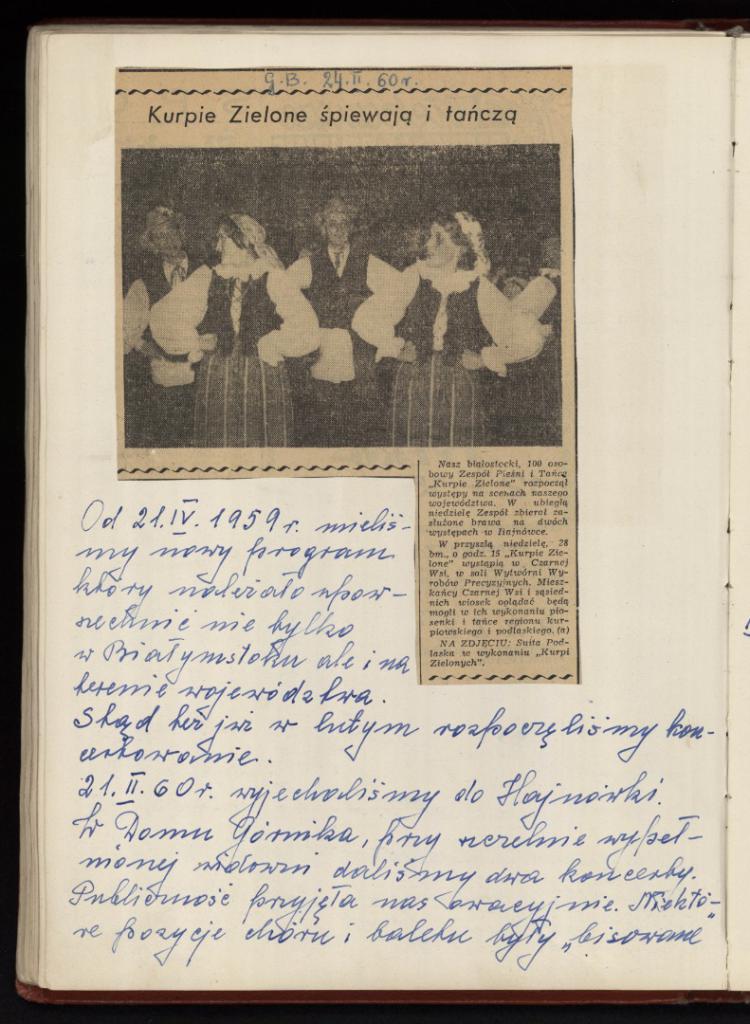 G.B. 24.II.60r.
Kurpie Zielone śpiewają i tańczą
Nasz białostocki, 100 oso-
bowy Zespół Pieśni i Tańca
„Kurpie Zielone" rozpoczął
występy na scenach naszego
województwa. W ubiegłą
niedzielę Zespół zbierał za-
służone brawa na dwóch
występach w Hajnówce.
W przyszłą niedzielę, 28
bm., o godz. 15 „Kurpie Zie-
lone" wystąpią w Czarnej
Wsi, w sali Wytwórni Wy-
robów Precyzyjnych. Miesz-
kańcy Czarnej Wsi i sąsied-
nich wiosek oglądać będą
mogli w ich wykonaniu pio-
senki i tańce regionu kur-
piowskiego i podlaskiego. (a)
NA ZDJĘCIU: Suita Pod-
laska w wykonaniu „Kurpi
Zielonych".
Od 21.IV.1959r. mieliś-
my nowy program
który należało upow-
szechnić nie tylko
w Białymstoku ale i na
terenie województwa.
Stąd też już w lutym rozpoczęliśmy kon-
certowanie.
21.II.60r. wyjechaliśmy do Hajnówki.
W Domu Górnika, przy szczelnie wypeł-
nionej widowni daliśmy dwa koncerty.
Publiczność przyjęła nas owacyjnie. Niektó-
re pozycje chóru i baletu były „bisowane"